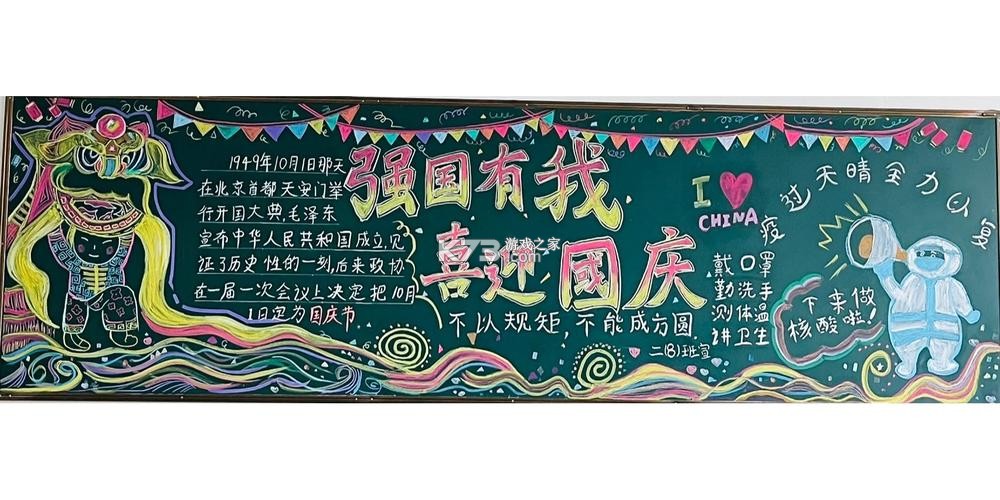 1949年10月1日那天
在北京首都天安门举
行开国大典,毛泽东
宣布中华人民共和国成立,见
证了历史性的一刻,后来政协
在一届一次会议上决定把10月
1日定为国庆节
强国有我
喜迎國庆
不以规矩,不能成方圆
二(8)班宣
I
CHINA
疫过天晴全力以复
戴口罩
勤洗手
测体温
讲卫生
下来做
核酸啦!
K73 游戏之家
.com